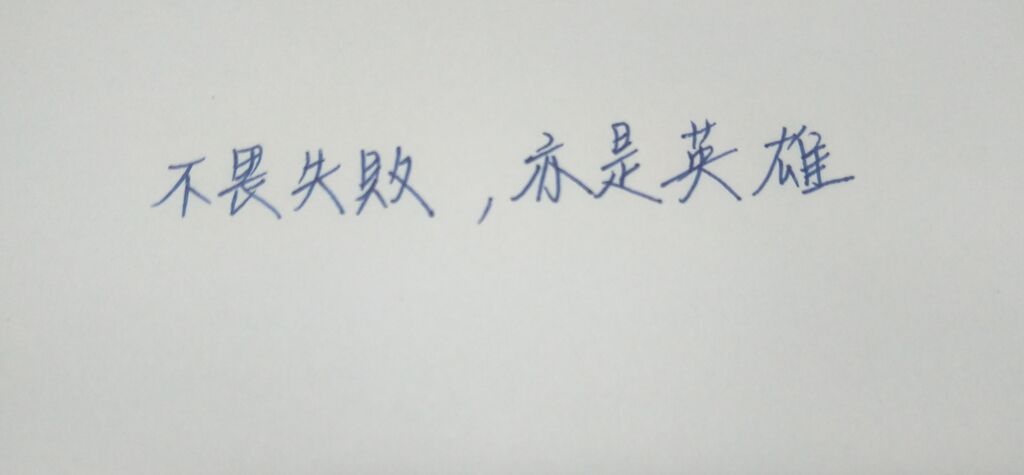 不畏失敗，亦是英雄